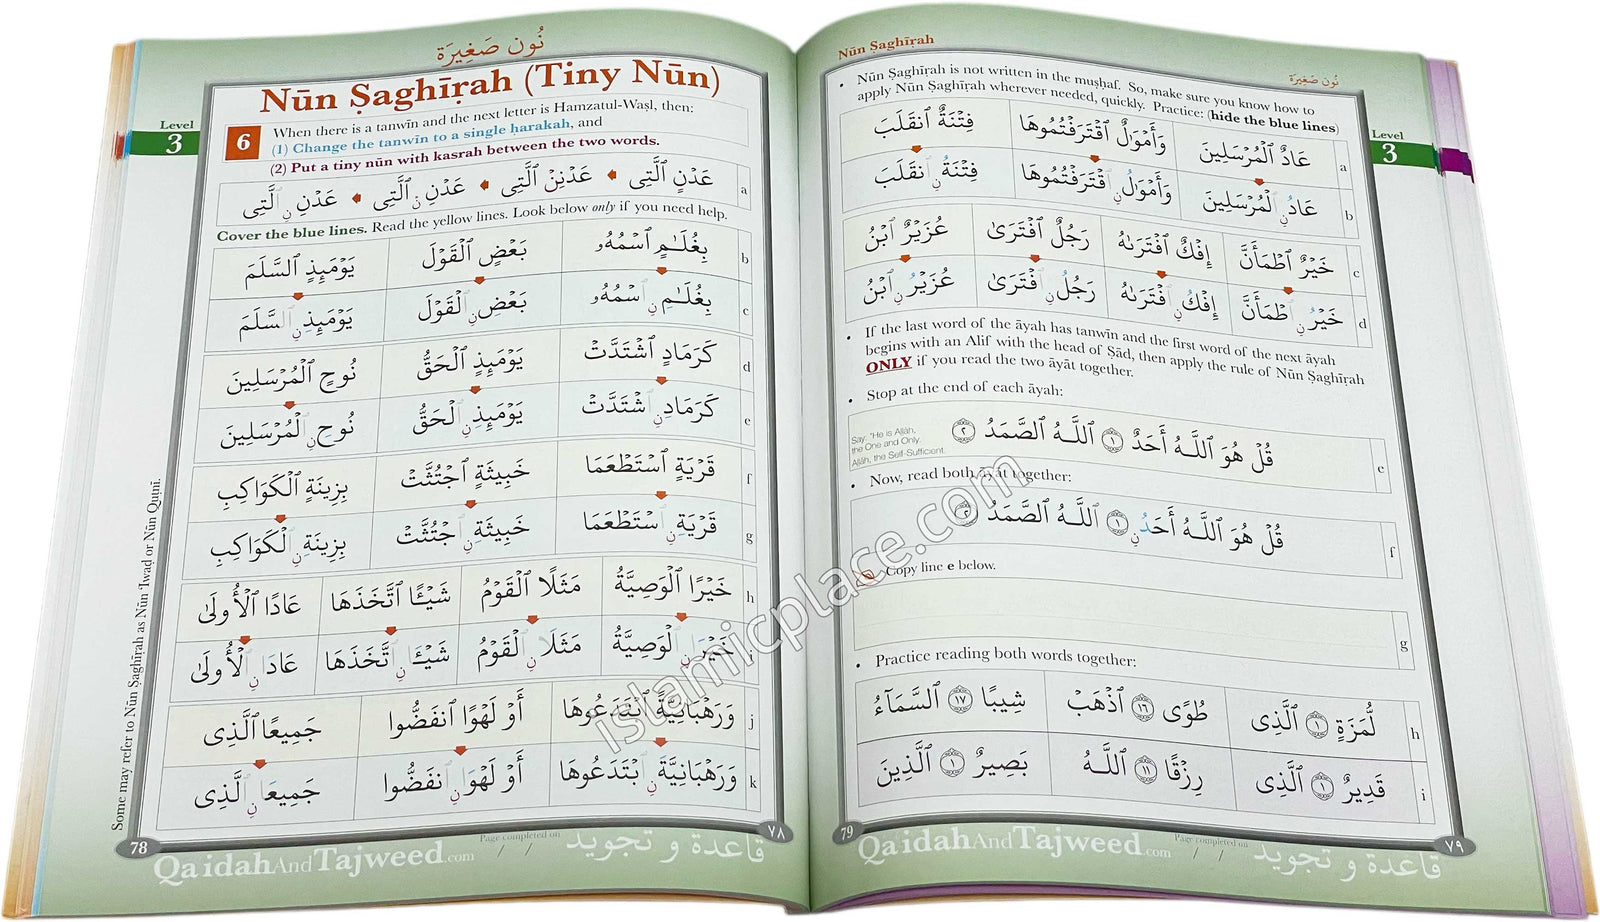 نُون صَغِيرَة
Nūn Ṣaghīrah (Tiny Nūn)
Level
3
6
When there is a tanwīn and the next letter is Hamzatul-Waṣl, then:
(1) Change the tanwīn to a single ḥarakah, and
(2) Put a tiny nūn with kasrah between the two words.
عَدْنٍ ٱلَّتِى عَدْنِنْ ٱلَّتِى عَدْنِ نِ ٱلَّتِى عَدْنِ نِ ٱلَّتِى a
Cover the blue lines. Read the yellow lines. Look below only if you need help.
بِغُلَـٰمٍ ٱسْمُهُۥ بَعْضٍ ٱلْقَوْلَ يَوْمَئِذٍ ٱلسَّلَمَ b
بِغُلَـٰمِ نِ ٱسْمُهُۥ بَعْضِ نِ ٱلْقَوْلَ يَوْمَئِذِ نِ ٱلسَّلَمَ c
كَرَمَادٍ ٱشْتَدَّتْ يَوْمَئِذٍ ٱلْحَقُّ نُوحٍ ٱلْمُرْسَلِينَ d
كَرَمَادِ نِ ٱشْتَدَّتْ يَوْمَئِذِ نِ ٱلْحَقُّ نُوحِ نِ ٱلْمُرْسَلِينَ e
قَرْيَةٍ ٱسْتَطْعَمَا خَبِيثَةٍ ٱجْتُثَّتْ بِزِينَةٍ ٱلْكَوَاكِبِ f
قَرْيَةِ نِ ٱسْتَطْعَمَا خَبِيثَةِ نِ ٱجْتُثَّتْ بِزِينَةِ نِ ٱلْكَوَاكِبِ g
خَيْرًا ٱلْوَصِيَّةُ مَثَلًا ٱلْقَوْمُ شَيْـًٔا ٱتَّخَذَهَا عَادًا ٱلْأُولَىٰ h
خَيْرَا نِ ٱلْوَصِيَّةُ مَثَلَا نِ ٱلْقَوْمُ شَيْـَٔا نِ ٱتَّخَذَهَا عَادَا نِ ٱلْأُولَىٰ i
وَرَهْبَانِيَّةً ٱبْتَدَعُوهَا أَوْ لَهْوًا ٱنفَضُّوا جَمِيعًا ٱلَّذِى j
وَرَهْبَانِيَّةَ نِ ٱبْتَدَعُوهَا أَوْ لَهْوَا نِ ٱنفَضُّوا جَمِيعَا نِ ٱلَّذِى k
Some may refer to Nūn Ṣaghīrah as Nūn ʿIwaḍ or Nūn Quṭnī.
78
QaidahAndTajweed.com
Page completed on / /
قاعدة و تجويد
٧٨
Nūn Ṣaghīrah
نُون صَغِيرَة
Level
3
• Nūn Ṣaghīrah is not written in the muṣḥaf. So, make sure you know how to
apply Nūn Ṣaghīrah wherever needed, quickly. Practice: (hide the blue lines)
عَادٌ ٱلْمُرْسَلِينَ وَأَمْوَٰلٌ ٱقْتَرَفْتُمُوهَا فِتْنَةٌ ٱنقَلَبَ a
عَادُ نِ ٱلْمُرْسَلِينَ وَأَمْوَٰلُ نِ ٱقْتَرَفْتُمُوهَا فِتْنَةُ نِ ٱنقَلَبَ b
خَيْرٌ ٱطْمَأَنَّ إِفْكٌ ٱفْتَرَىٰهُ رَجُلٌ ٱفْتَرَىٰ عُزَيْرٌ ٱبْنُ c
خَيْرُ نِ ٱطْمَأَنَّ إِفْكُ نِ ٱفْتَرَىٰهُ رَجُلُ نِ ٱفْتَرَىٰ عُزَيْرُ نِ ٱبْنُ d
• If the last word of the āyah has tanwīn and the first word of the next āyah
begins with an Alif with the head of Ṣād, then apply the rule of Nūn Ṣaghīrah
ONLY if you read the two āyāt together.
• Stop at the end of each āyah:
Say: "He is Allāh,
the One and Only.
Allāh, the Self-Sufficient.
قُلْ هُوَ ٱللَّـهُ أَحَدٌ ١ ٱللَّـهُ ٱلصَّمَدُ ٢ e
• Now, read both āyāt together:
قُلْ هُوَ ٱللَّـهُ أَحَدُ نِ ١ ٱللَّـهُ ٱلصَّمَدُ ٢ f
Copy line e below.
g
• Practice reading both words together:
لُّمَزَةٍ ١ ٱلَّذِى طُوًى ١٦ ٱذْهَبْ شِيبًا ١٧ ٱلسَّمَآءُ h
قَدِيرٌ ١ ٱلَّذِى رِزْقًا ١١ ٱللَّـهُ بَصِيرٌ ١ ٱلَّذِينَ i
79
QaidahAndTajweed.com
Page completed on / /
قاعدة و تجويد
٧٩
islamicplace.com